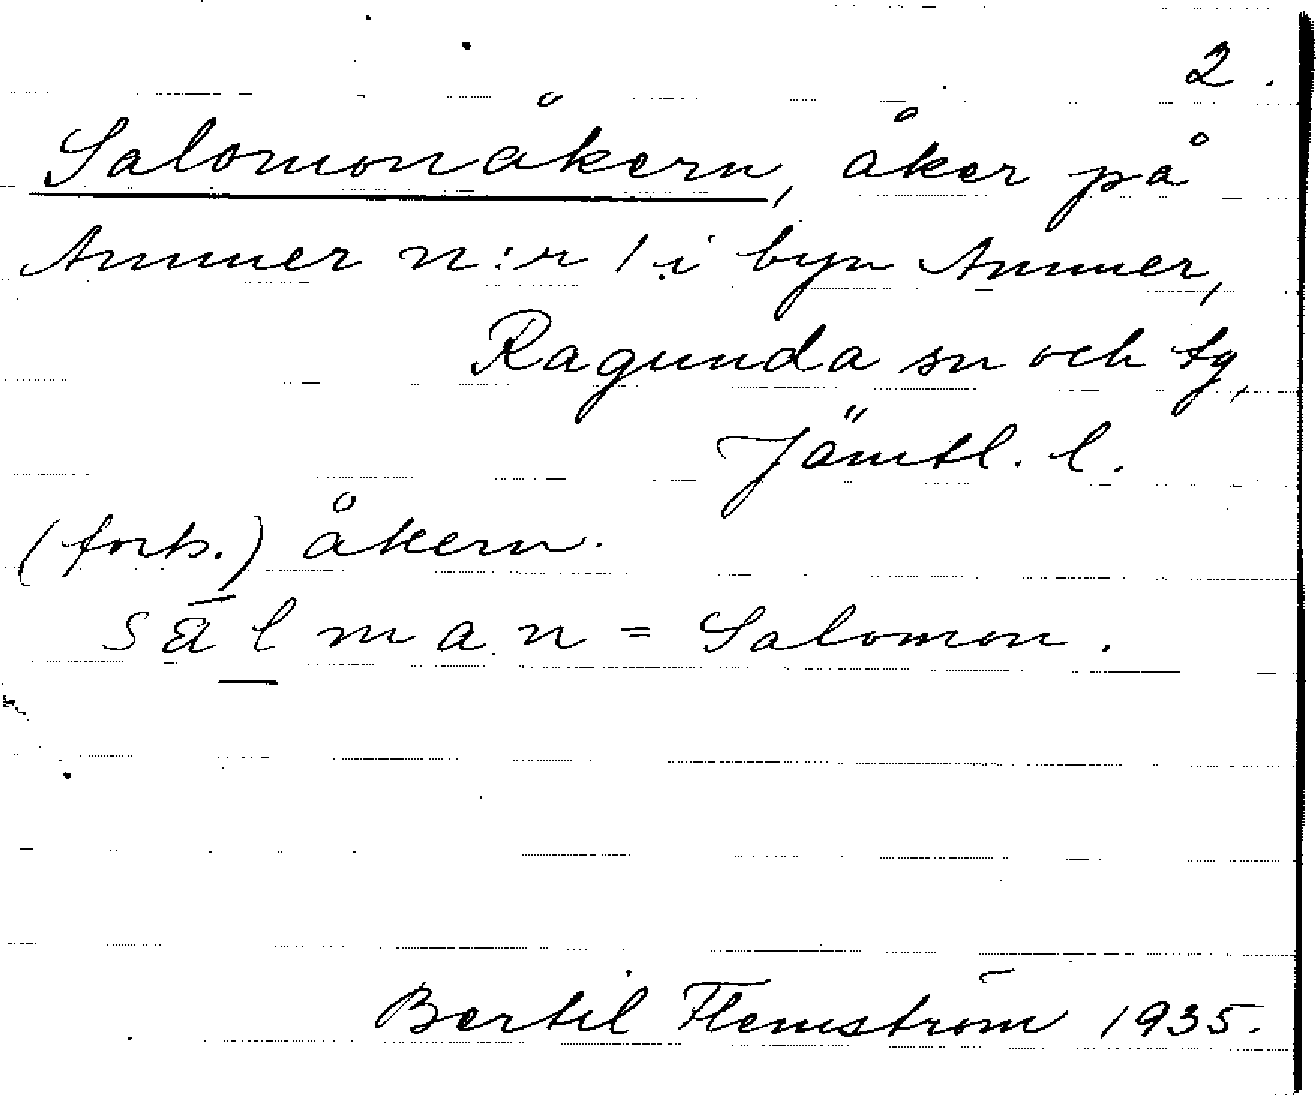 2.
Salomonåkern, åker på
Ammer n:r 1 i byn Ammer,
Ragunda sn och tg,
Jämtl. l.
(forts.) åkern.
sālman = Salomon.
Bertil Flemström 1935.